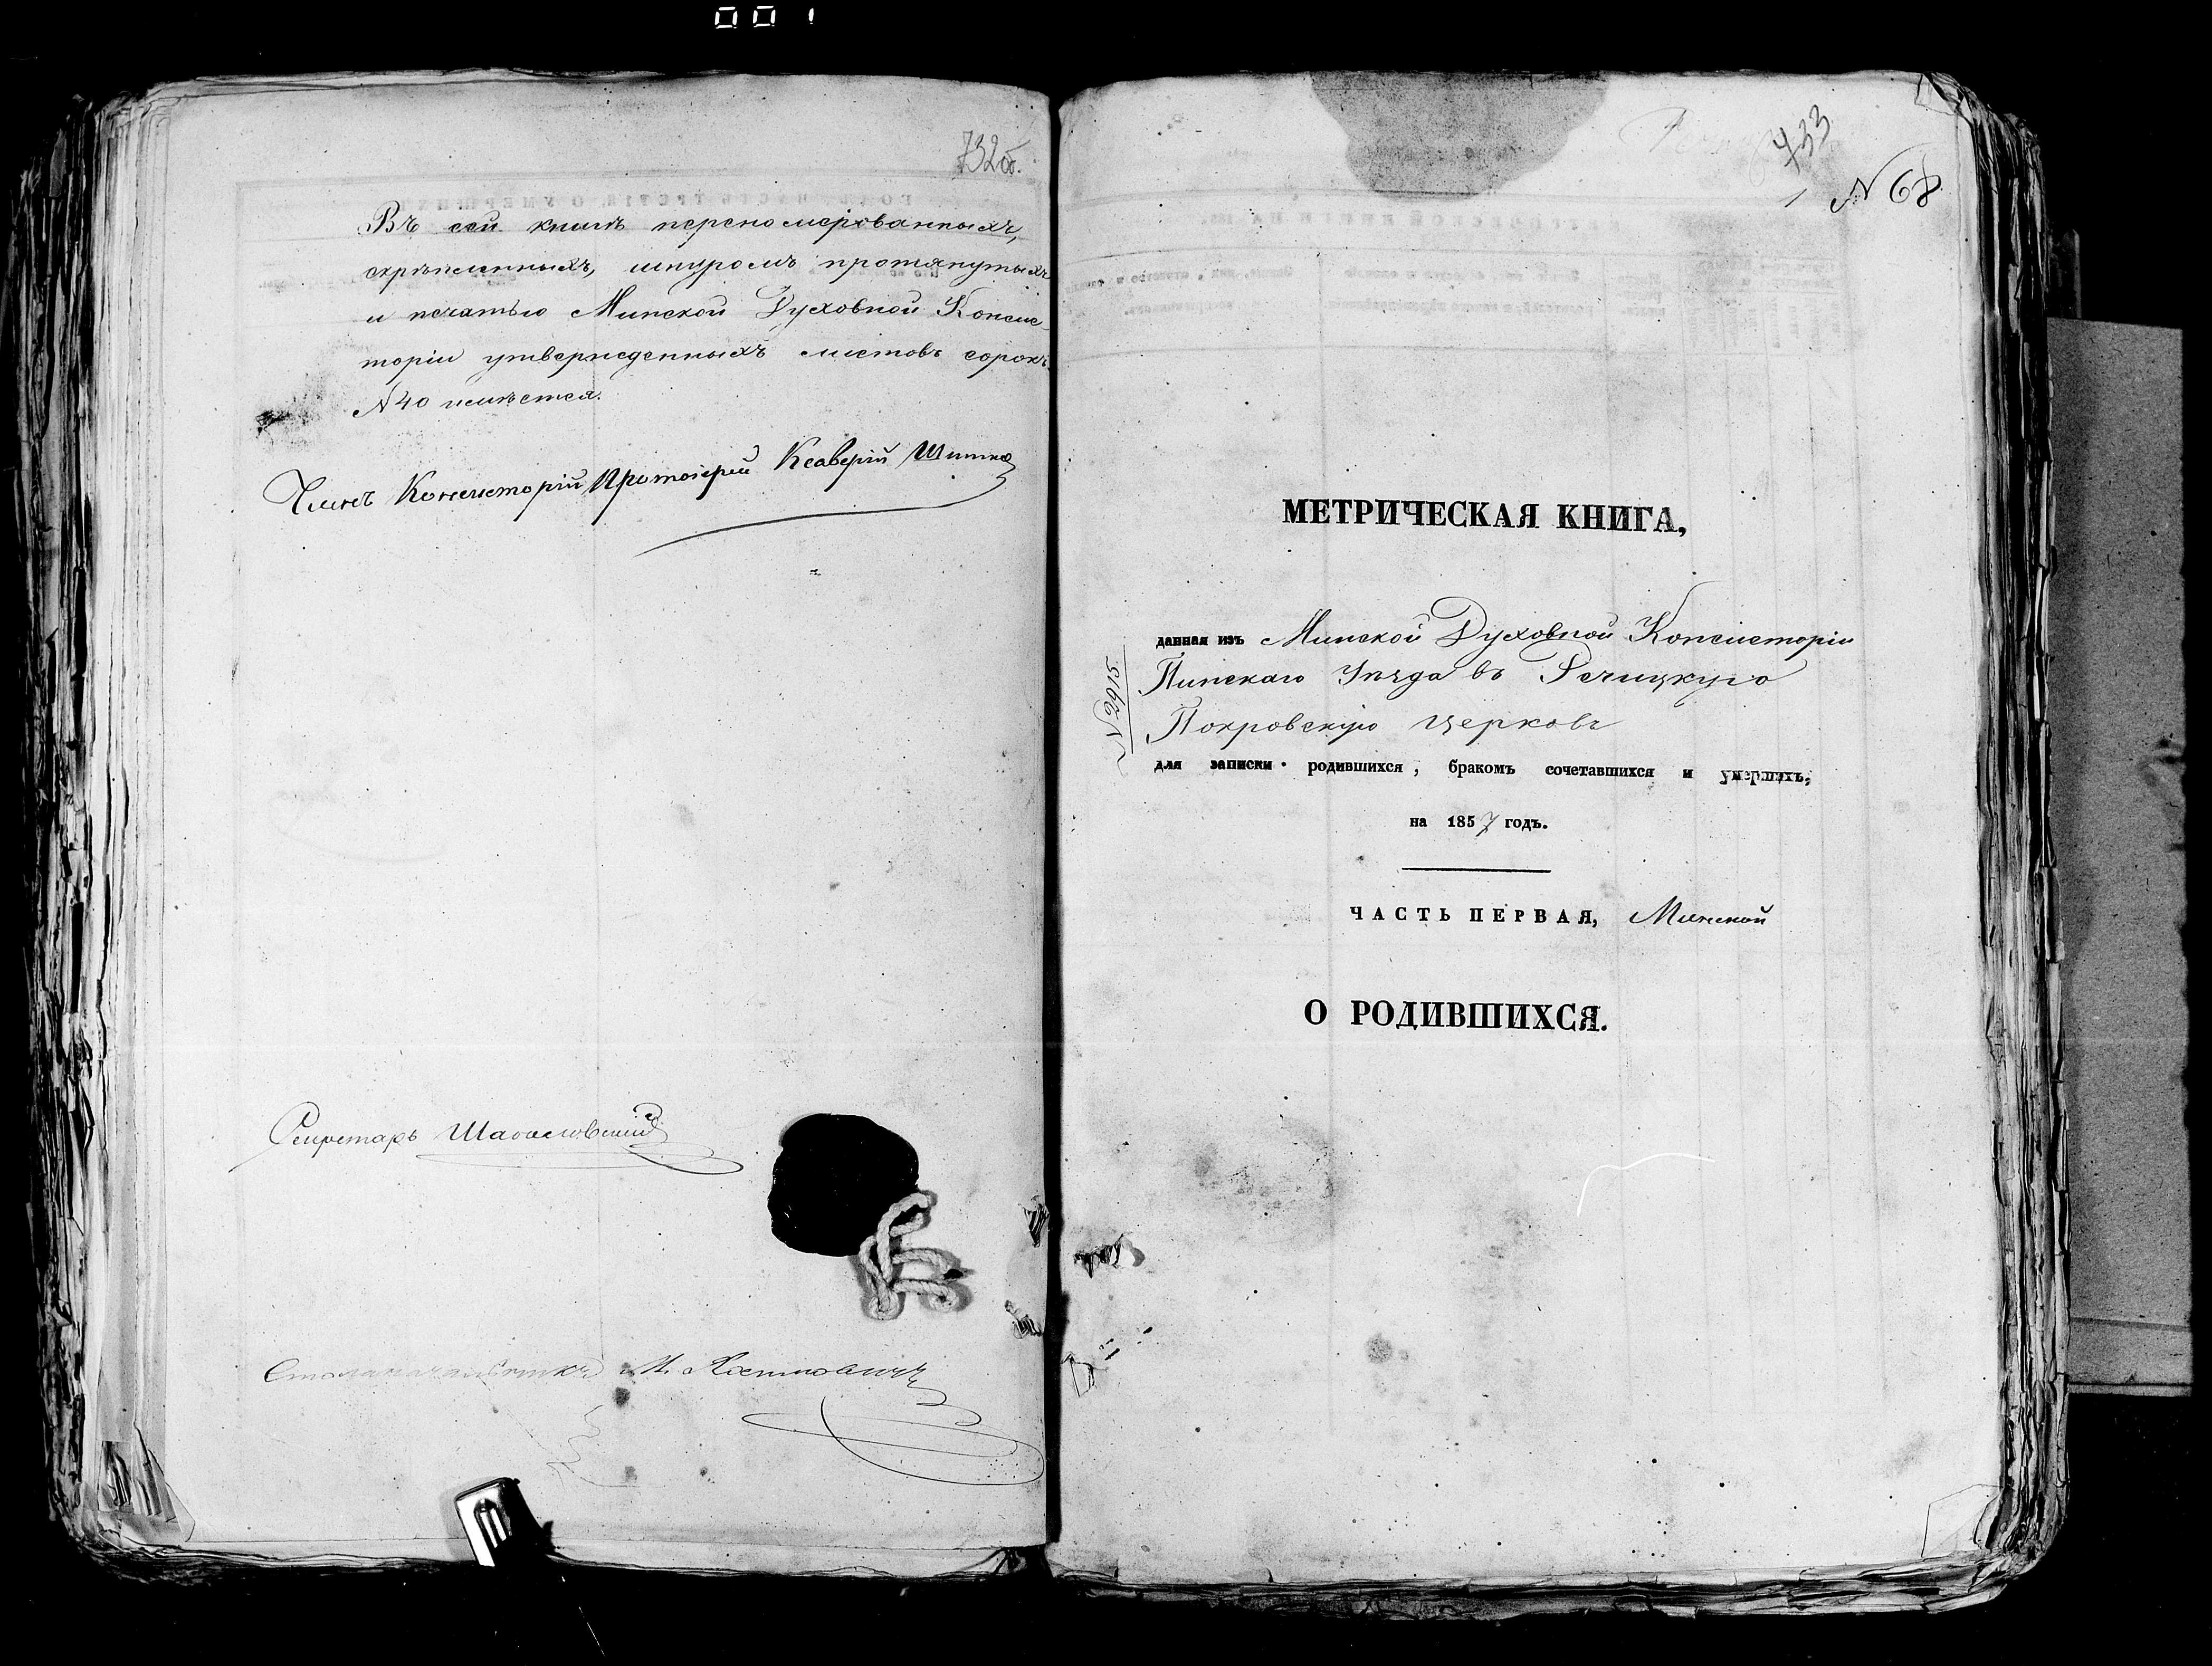 001
732об.
Въ сей книгѣ перенумерованныхъ,
скрѣпленныхъ, шнуромъ протянутыхъ
и печатью Минской Духовной Консис-
торіи утвержденныхъ листовъ сорокъ
№ 40 имѣется.
Членъ Консисторіи Протоіерей Ксаверій
Секретарь
Столоначальникъ М.
733
№ 68
МЕТРИЧЕСКАЯ КНИГА,
данная изъ Минской Духовной Консисторіи
Пинскаго Уѣзда въ Речицкую
Покровскую церковь
для записки родившихся, бракомъ сочетавшихся и умершихъ,
на 1857 годъ.
ЧАСТЬ ПЕРВАЯ, Минской
О РОДИВШИХСЯ.